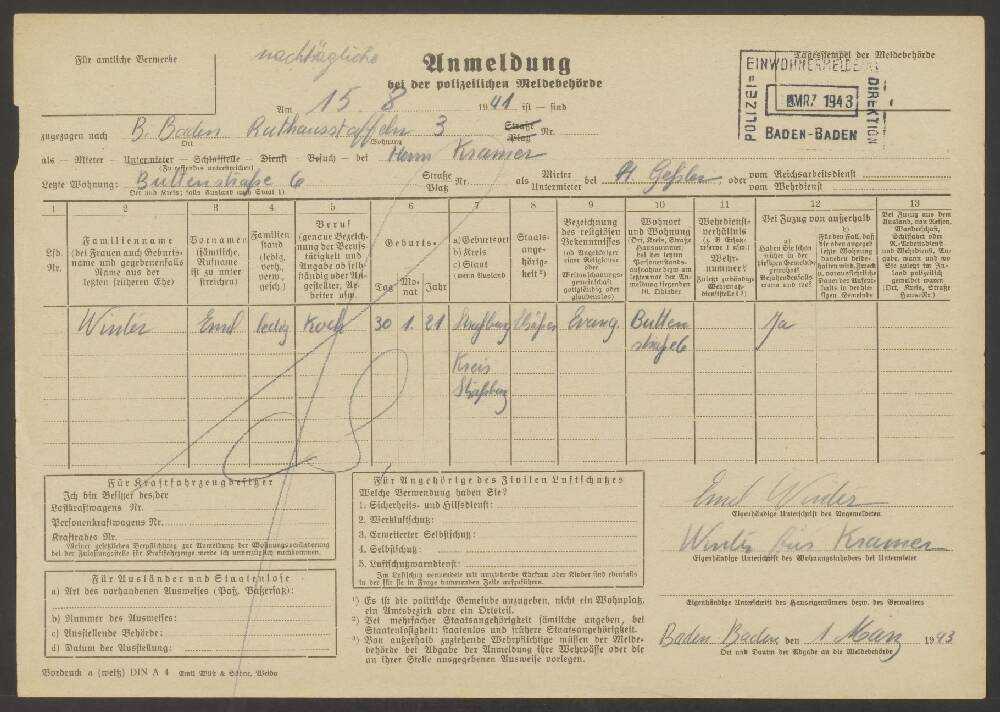 Für amtliche Vermerke
nachträgliche
Anmeldung
bei der polizeilichen Meldebehörde
Tagesstempel der Meldebehörde
POLIZEI-DIREKTION
EINWOHNERMELDEAMT
MRZ 1943
BADEN-BADEN
Am 15. 8 1941 ist — sind
zugezogen nach B. Baden Rathausstaffeln 3 Straße Platz Nr.
Ort Wohnung
als — Mieter — Untermieter — Schlafstelle — Dienst — Besuch — bei Herrn Kramer
(Zutreffendes unterstreichen)
Letzte Wohnung: Buttenstraße 6 Straße Platz Nr. als Mieter Untermieter bei Geßler, oder vom Reichsarbeitsdienst
vom Wehrdienst
Ort und Kreis; falls Ausland auch Staat 1)
1 2 3 4 5 6 7 8 9 10 11 12 13
Lfd. Nr.
Familienname
(bei Frauen auch Geburtsname und gegebenenfalls Name aus der letzten früheren Ehe)
Vornamen
(sämtliche, Rufname ist zu unterstreichen)
Familienstand
(ledig, verh., verw., gesch.)
Beruf
(genaue Bezeichnung der Berufstätigkeit und Angabe ob selbständig oder Angestellter, Arbeiter usw.
Geburts-
Tag Monat Jahr
a) Geburtsort
b) Kreis
c) Staat
(wenn Ausland
Staatsangehörigkeit 2)
Bezeichnung des religiösen Bekenntnisses
Wohnort und Wohnung
(Ort, Kreis, Straße Hausnummer)
bei der letzten Personenstandsaufnahme
Wehrdienstverhältnis
Wehrnummer?
Bei Zuzug von außerhalb
a) Haben Sie schon früher in der hiesigen Gemeinde gewohnt?
Bejahendenfalls wann und wo?
b)
Für den Fall, daß Sie die oben angegebene Wohnung daneben beibehalten
Winter Emil ledig Koch 30 1. 21 Straßburg Elsäßer Evang. Butten Ja
straße 6
Kreis
Straßburg
Für Kraftfahrzeugbesitzer
Ich bin Besitzer des/der
Lastkraftwagens Nr.
Personenkraftwagens Nr.
Kraftrades Nr.
Meiner gesetzlichen Verpflichtung zur Anmeldung der Wohnungsveränderung
bei der Zulassungsstelle für Kraftfahrzeuge werde ich unverzüglich nachkommen.
Für Ausländer und Staatenlose
a) Art des vorhandenen Ausweises (Paß, Paßersatz):
b) Nummer des Ausweises:
c) Ausstellende Behörde:
d) Datum der Ausstellung:
Vordruck a (weiß) DIN A 4
Für Angehörige des Zivilen Luftschutzes
Welche Verwendung haben Sie?
1. Sicherheits- und Hilfsdienst:
2. Werkluftschutz:
3. Erweiterter Selbstschutz:
4. Selbstschutz:
5. Luftschutzwarndienst:
Im Luftschutz verwendete mit anziehende Ehefrau oder Kinder sind ebenfalls
in der für sie in Frage kommenden Zeile aufzuführen.
1) Es ist die politische Gemeinde anzugeben, nicht ein Wohnplatz,
ein Amtsbezirk oder ein Ortsteil.
2) Bei mehrfacher Staatsangehörigkeit sämtliche angeben, bei
Staatenlosigkeit: staatenlos und frühere Staatsangehörigkeit.
3) Von außerhalb zuziehende Wehrpflichtige müssen der Meldebehörde
bei Abgabe der Anmeldung ihre Wehrpässe oder die
an ihrer Stelle ausgegebenen Ausweise vorlegen.
Emil Winter
Eigenhändige Unterschrift des Angemeldeten
Winter für Kramer
Eigenhändige Unterschrift des Wohnungsinhabers bei Untermieter
Eigenhändige Unterschrift des Hauseigentümers bezw. des Verwalters
Baden Baden, den 1 März 1943
Ort und Datum der Abgabe an die Meldebehörde